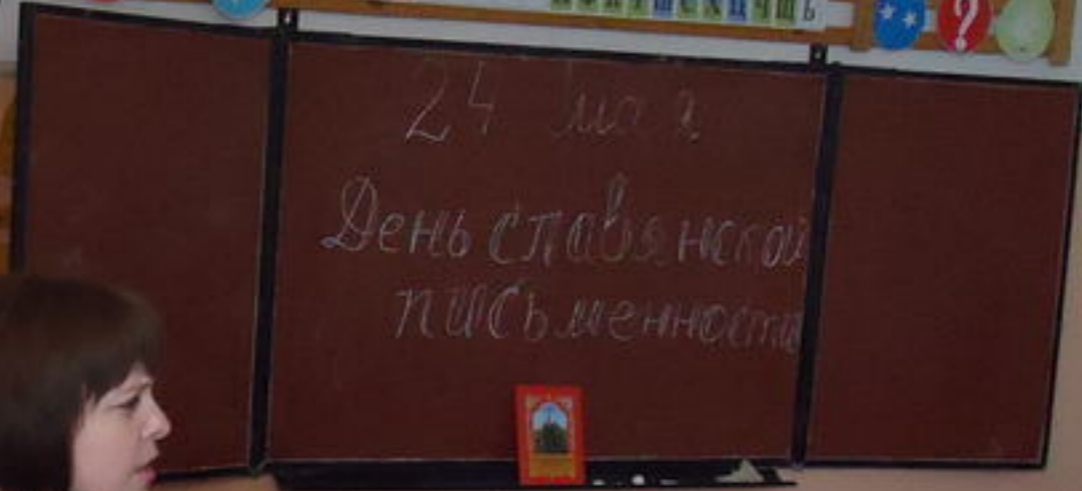 24 мая
День славянской
письменности